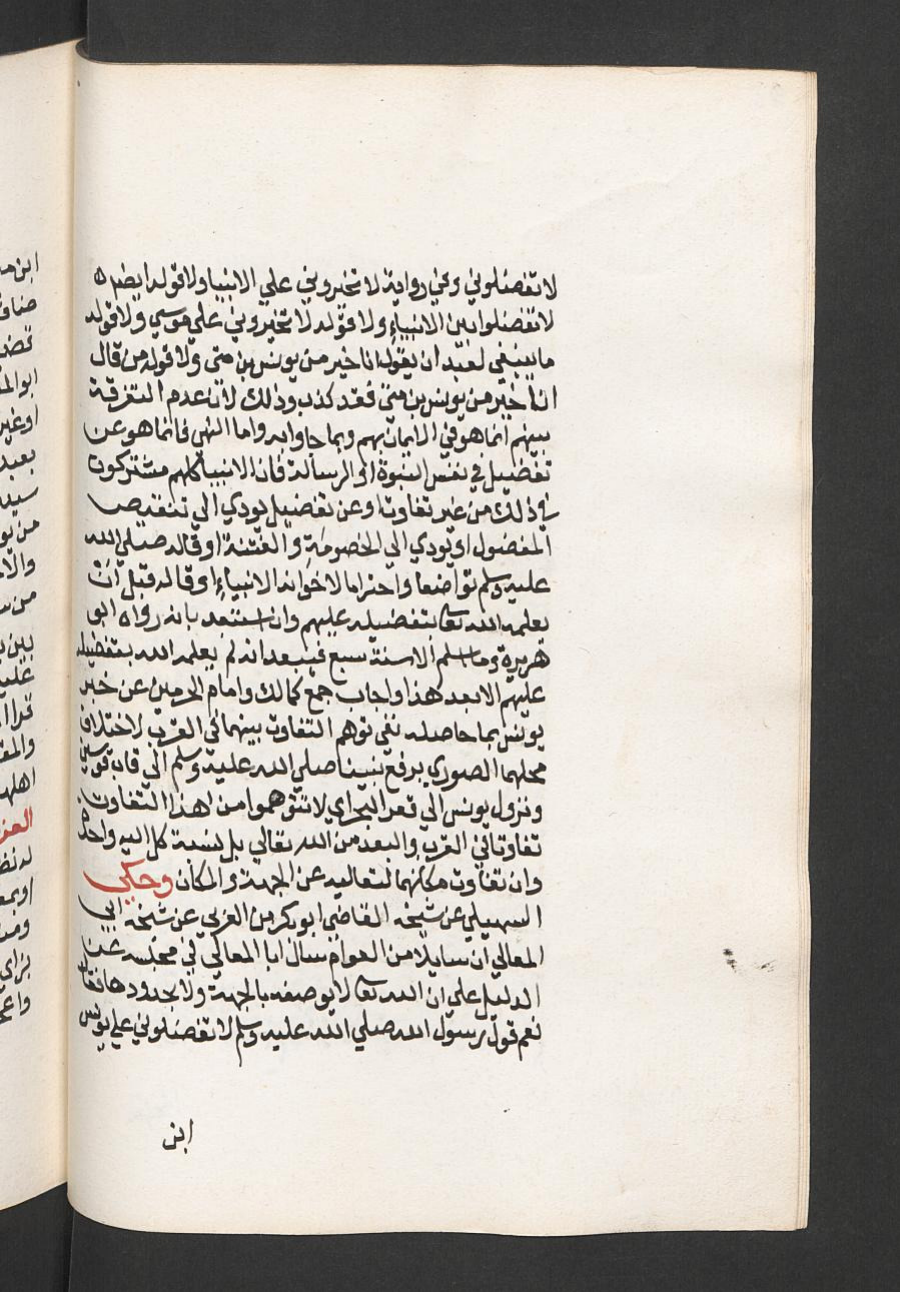 لا تفضلوني وفي رواية لا تخيروني علي الانبيا ولا قوله ايضا
لا تفضلوا بين الانبياء ولا قوله لا تخيروني علي موسي ولا قوله
ما ينبغي لعبد ان يقول انا خير من يونس بن متي ولا قوله من قال
انا خير من يونس بن متي فقد كذب وذلك لان عدم التفرقة
بينهم انما هو في الايمان بهم وبما جاوا به واما النهي فانما هو عن
تفضيل في نفس النبوة او الرسالة فان الانبيا كلهم مشتركون
في ذلك من غير تفاوت او عن تفضيل يودي الي تنقيص
المفضول او يودي الي الخصومة والفتنة او قاله صلي الله
عليه وسلم تواضعا واحتراما لاخوانه الانبياء او قاله قبل ان
يعلمه الله تعا بتفضيله عليهم وان استبعد بانه رواه ابو
هريرة وما اسلم الا سنة سبع فيبعد انه لم يعلمه الله بتفضيله
عليهم الا بعد هذا واجاب جمع كمالك وامام الحرمين عن خبر
يونس بما حاصله نفي توهم التفاوت بينهما في القرب لاختلاف
محلهما الصوري برفع نبينا صلي الله عليه وسلم الي قاب قوسين
ونزول يونس الي قعر البحر اي لا تتوهموا من هذا التفاوت
تفاوتا في القرب والبعد من الله تعالي بل نسبة كل اليه واحدة
وان تفاوت مكانهما لتعاليه عن الجهة والمكان وحكي
السهيلي عن شيخه القاضي ابو بكر بن العربي عن شيخه ابي
المعالي ان سايلا من العوام سال ابا المعالي في مجلسه عن
الدليل علي ان الله تعا لا يوصف بالجهة ولا بحدودها فقال
نعم قول رسول الله صلي الله عليه وسلم لا تفضلوني علي يونس
ابن